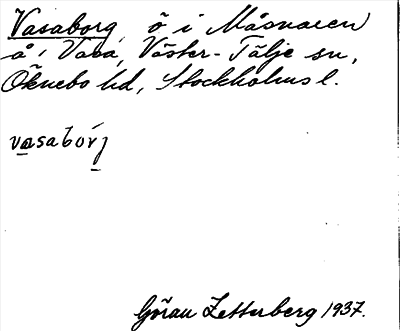 Vasaborg, ö i Måsnaren
å' Vasa, Väster-Tälje sn,
Öknebo hd, Stockholms l.
vasabórj
Göran Zetterberg 1937.